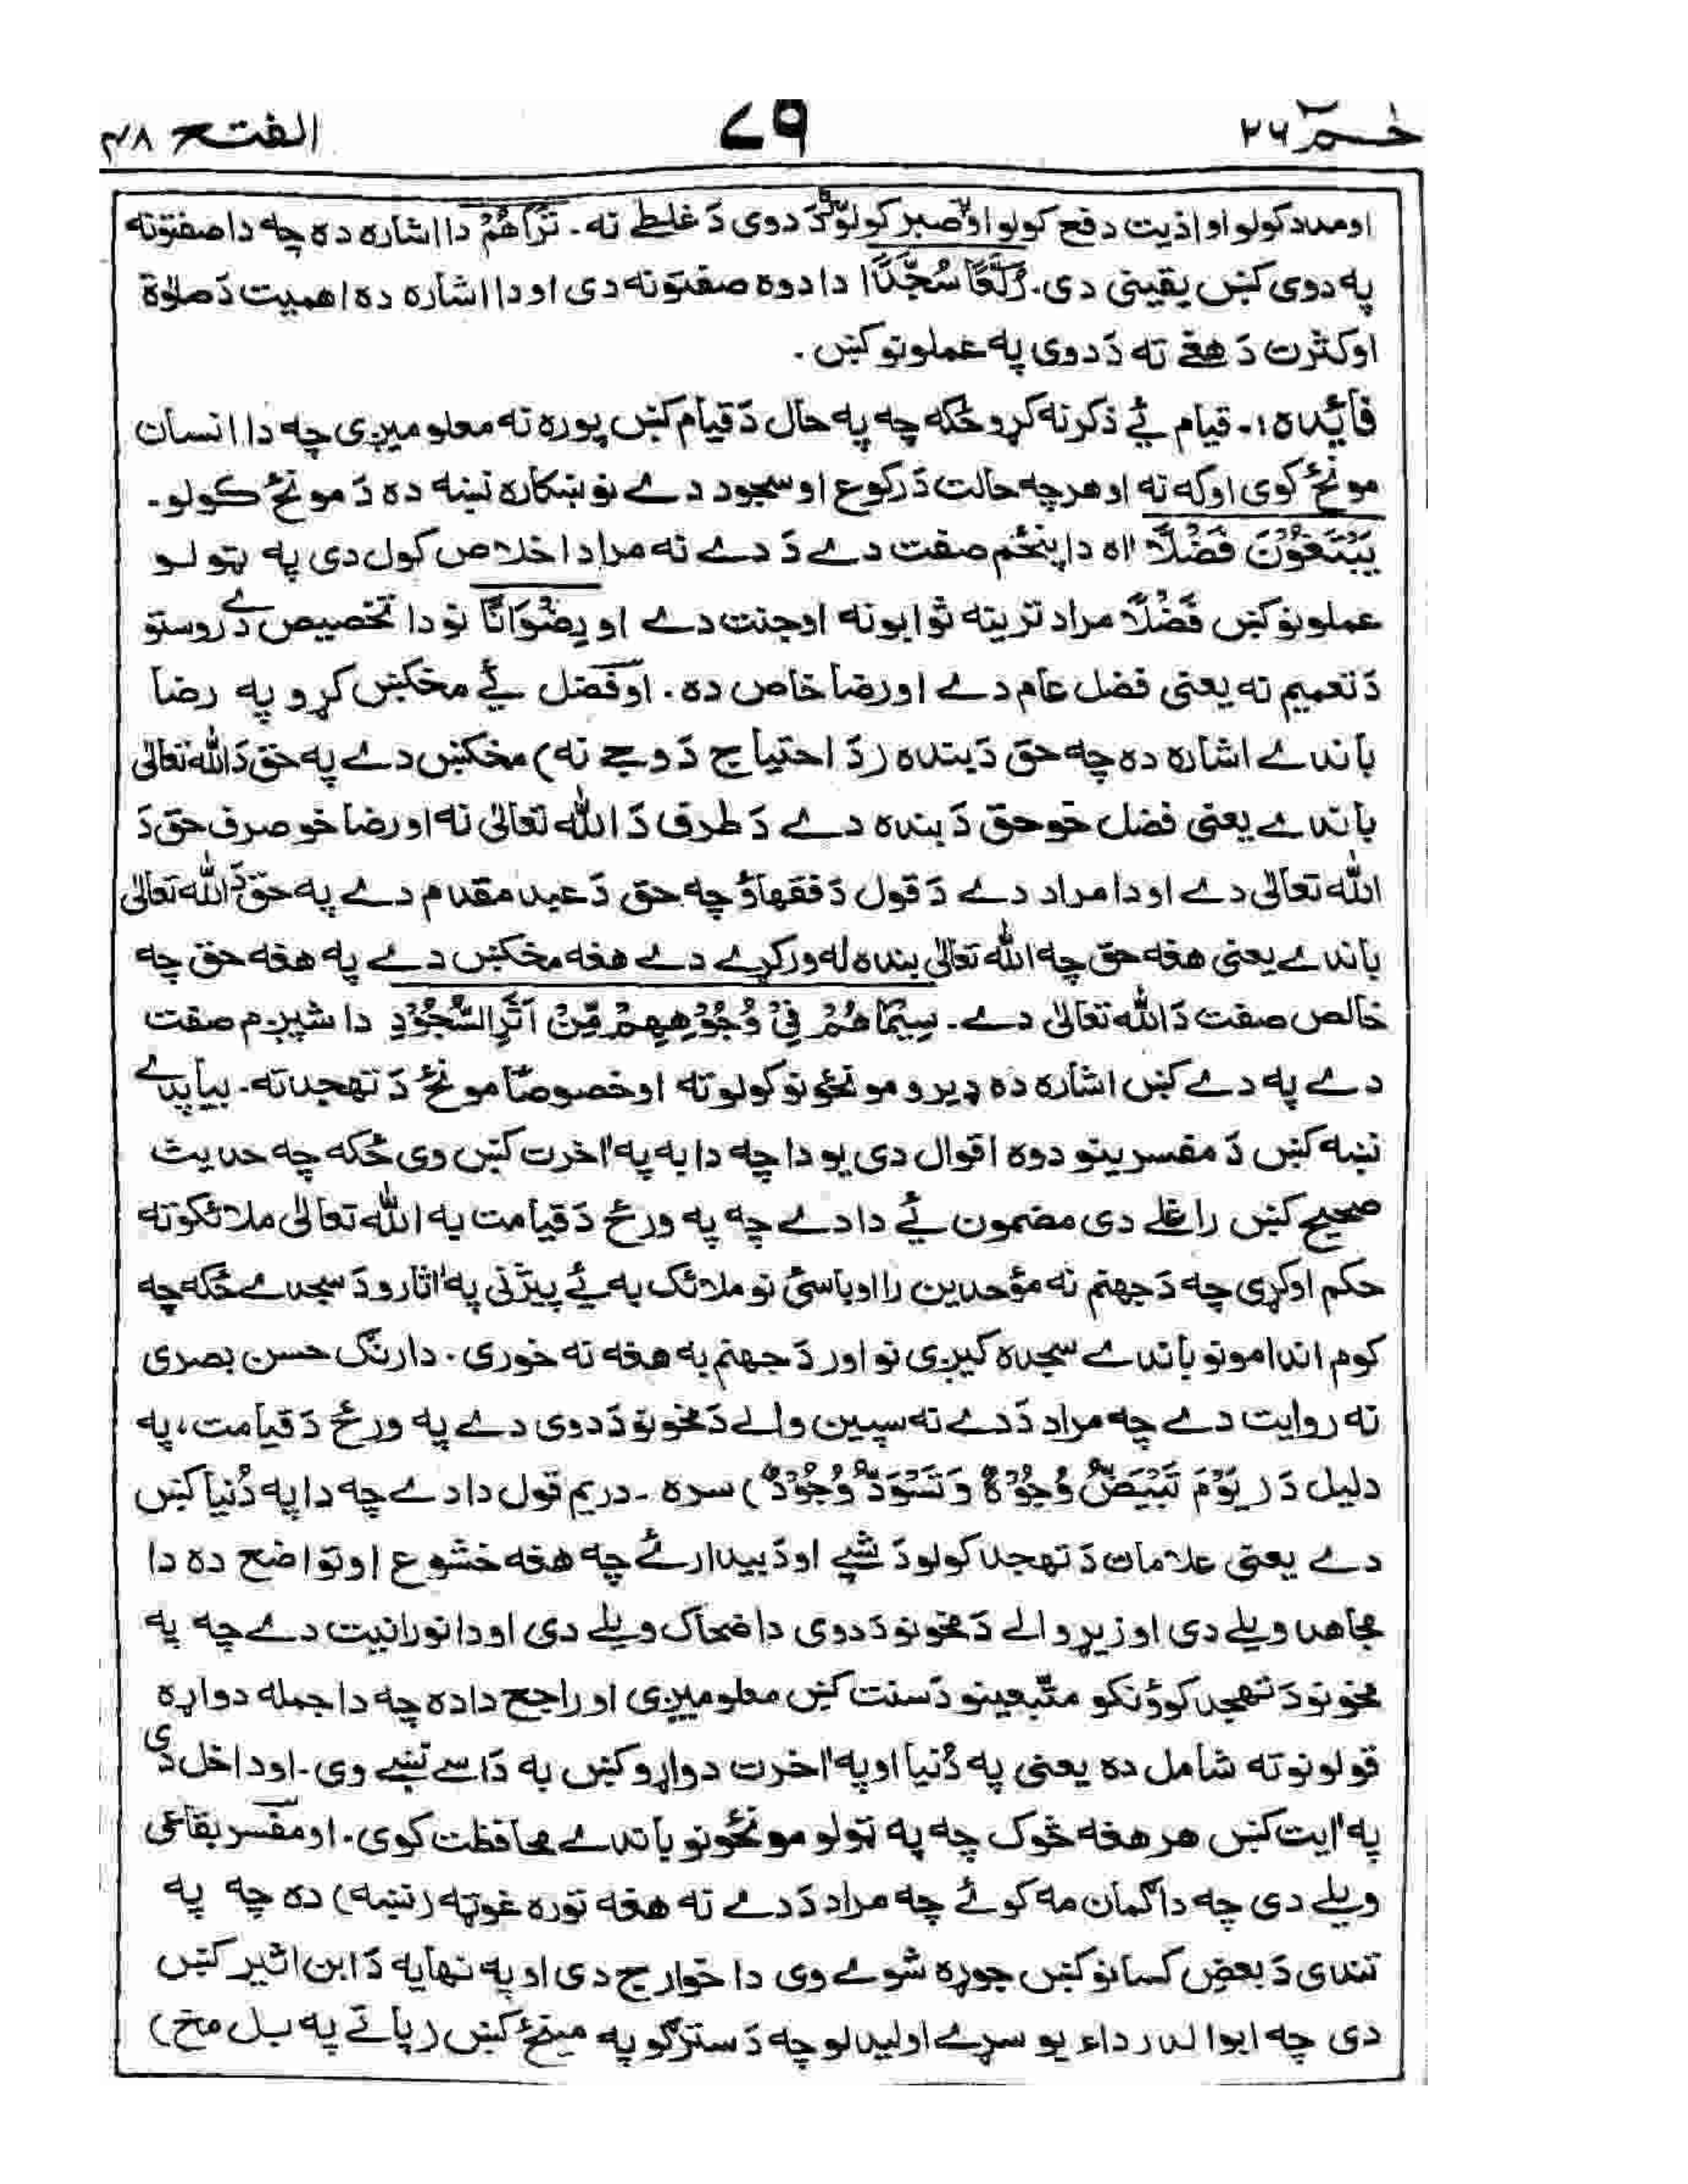 خـــم ٢٦ ٧٩ الفتح ٤٨
اومدد کولو او اذیت دفع کولو او صبر کولو دَ دوی دَ غلطے نه۔ تَرٰاهُمْ دا اشاره ده چه دا صفتونه
په دوی کښ یقینی دی۔ رُكَّعًا سُجَّدًا دا دوه صفتونه دی او دا اشاره ده اهمیت دَ صلوٰة
او کثرت دَ هغے ته دَ دوی په عملونو کښ۔
فائیده ۱:۔ قیام ئے ذکر نه کړو ځکه چه په حال دَ قیام کښ پوره نه معلومیږی چه دا انسان
مونځ کوی او که نه او هرچه حالت دَ رکوع او سجود دے نو ښکاره نښه ده دَ مونځ کولو۔
يَبْتَغُوْنَ فَضْلًا الاٰه دا پنځم صفت دے دَ دے نه مراد اخلاص کول دی په ټولو
عملونو کښ فَضْلًا مراد ترینه ثوابونه او جنت دے او رِضْوَانًا نو دا تخصیص دے روستو
دَ تعمیم نه یعنی فضل عام دے او رضا خاص ده۔ او فضل ئے مخکښ کړو په رضا
باندے اشاره ده چه حق دَ بنده (دَ احتیاج دَ وجے نه) مخکښ دے په حق دَ الله تعالیٰ
باندے یعنی فضل خو حق دَ بنده دے دَ طرف دَ الله تعالیٰ نه او رضا خو صرف حق دَ
الله تعالیٰ دے او دا مراد دے دَ قول دَ فقهاؤ چه حق دَ عبد مقدم دے په حق دَ الله تعالیٰ
باندے یعنی هغه حق چه الله تعالیٰ بنده له ورکړے دے هغه مخکښ دے په هغه حق چه
خالص صفت دَ الله تعالیٰ دے۔ سِيْمَاهُمْ فِيْ وُجُوْهِهِمْ مِّنْ اَثَرِ السُّجُوْدِ دا شپږم صفت
دے په دے کښ اشاره ده ډیرو مونځونو کولو ته او خصوصًا مونځ دَ تهجد ته۔ بیا پدے
نښه کښ دَ مفسرینو دوه اقوال دی یو دا چه دا به په اٰخرت کښ وی ځکه چه حدیث
صحیح کښ راغلے دی مضمون ئے دا دے چه په ورځ دَ قیامت به الله تعالیٰ ملائکو ته
حکم اوکړی چه دَ جهنم نه مؤحدین را اوباسئ نو ملائک به ئے پیژنی په اٰثارو دَ سجدے ځکه چه
کوم اندامونو باندے سجده کیږی نو اور دَ جهنم به هغه نه خوری۔ دارنګ حسن بصری
نه روایت دے چه مراد دَ دے نه سپین والے دَ مخونو دَ دوی دے په ورځ دَ قیامت، په
دلیل دَ (يَوْمَ تَبْيَضُّ وُجُوْهٌ وَتَسْوَدُّ وُجُوْهٌ) سره۔ دریم قول دا دے چه دا په دُنیا کښ
دے یعنی علامات دَ تهجد کولو دَ شپے او دَ بیدارئے چه هغه خشوع او تواضع ده دا
مجاهد ویلے دی او زیړوالے دَ مخونو دَ دوی دا ضحاک ویلے دی او دا نورانیت دے چه په
مخونو دَ تهجد کوؤنکو متّبعینو دَ سنت کښ معلومیږی او راجح داده چه دا جمله دواړه
قولونو ته شامل ده یعنی په دُنیا او په اٰخرت دواړو کښ به دَاسے نښے وی۔ او داخل دی
په اٰیت کښ هر هغه څوک چه په ټولو مونځونو باندے محافظت کوی۔ او مفسر بقاعی
ویلے دی چه دا ګمان مه کوئے چه مراد دَ دے نه هغه توره غوټه (نښه) ده چه په
تندی دَ بعض کسانو کښ جوړه شوے وی دا خوارج دی او په نهایه دَ ابن اثیر کښ
دی چه ابوالدرداء یو سړے اولیدلو چه دَ سترګو په مینځ کښ (پاتے په بل مخ)